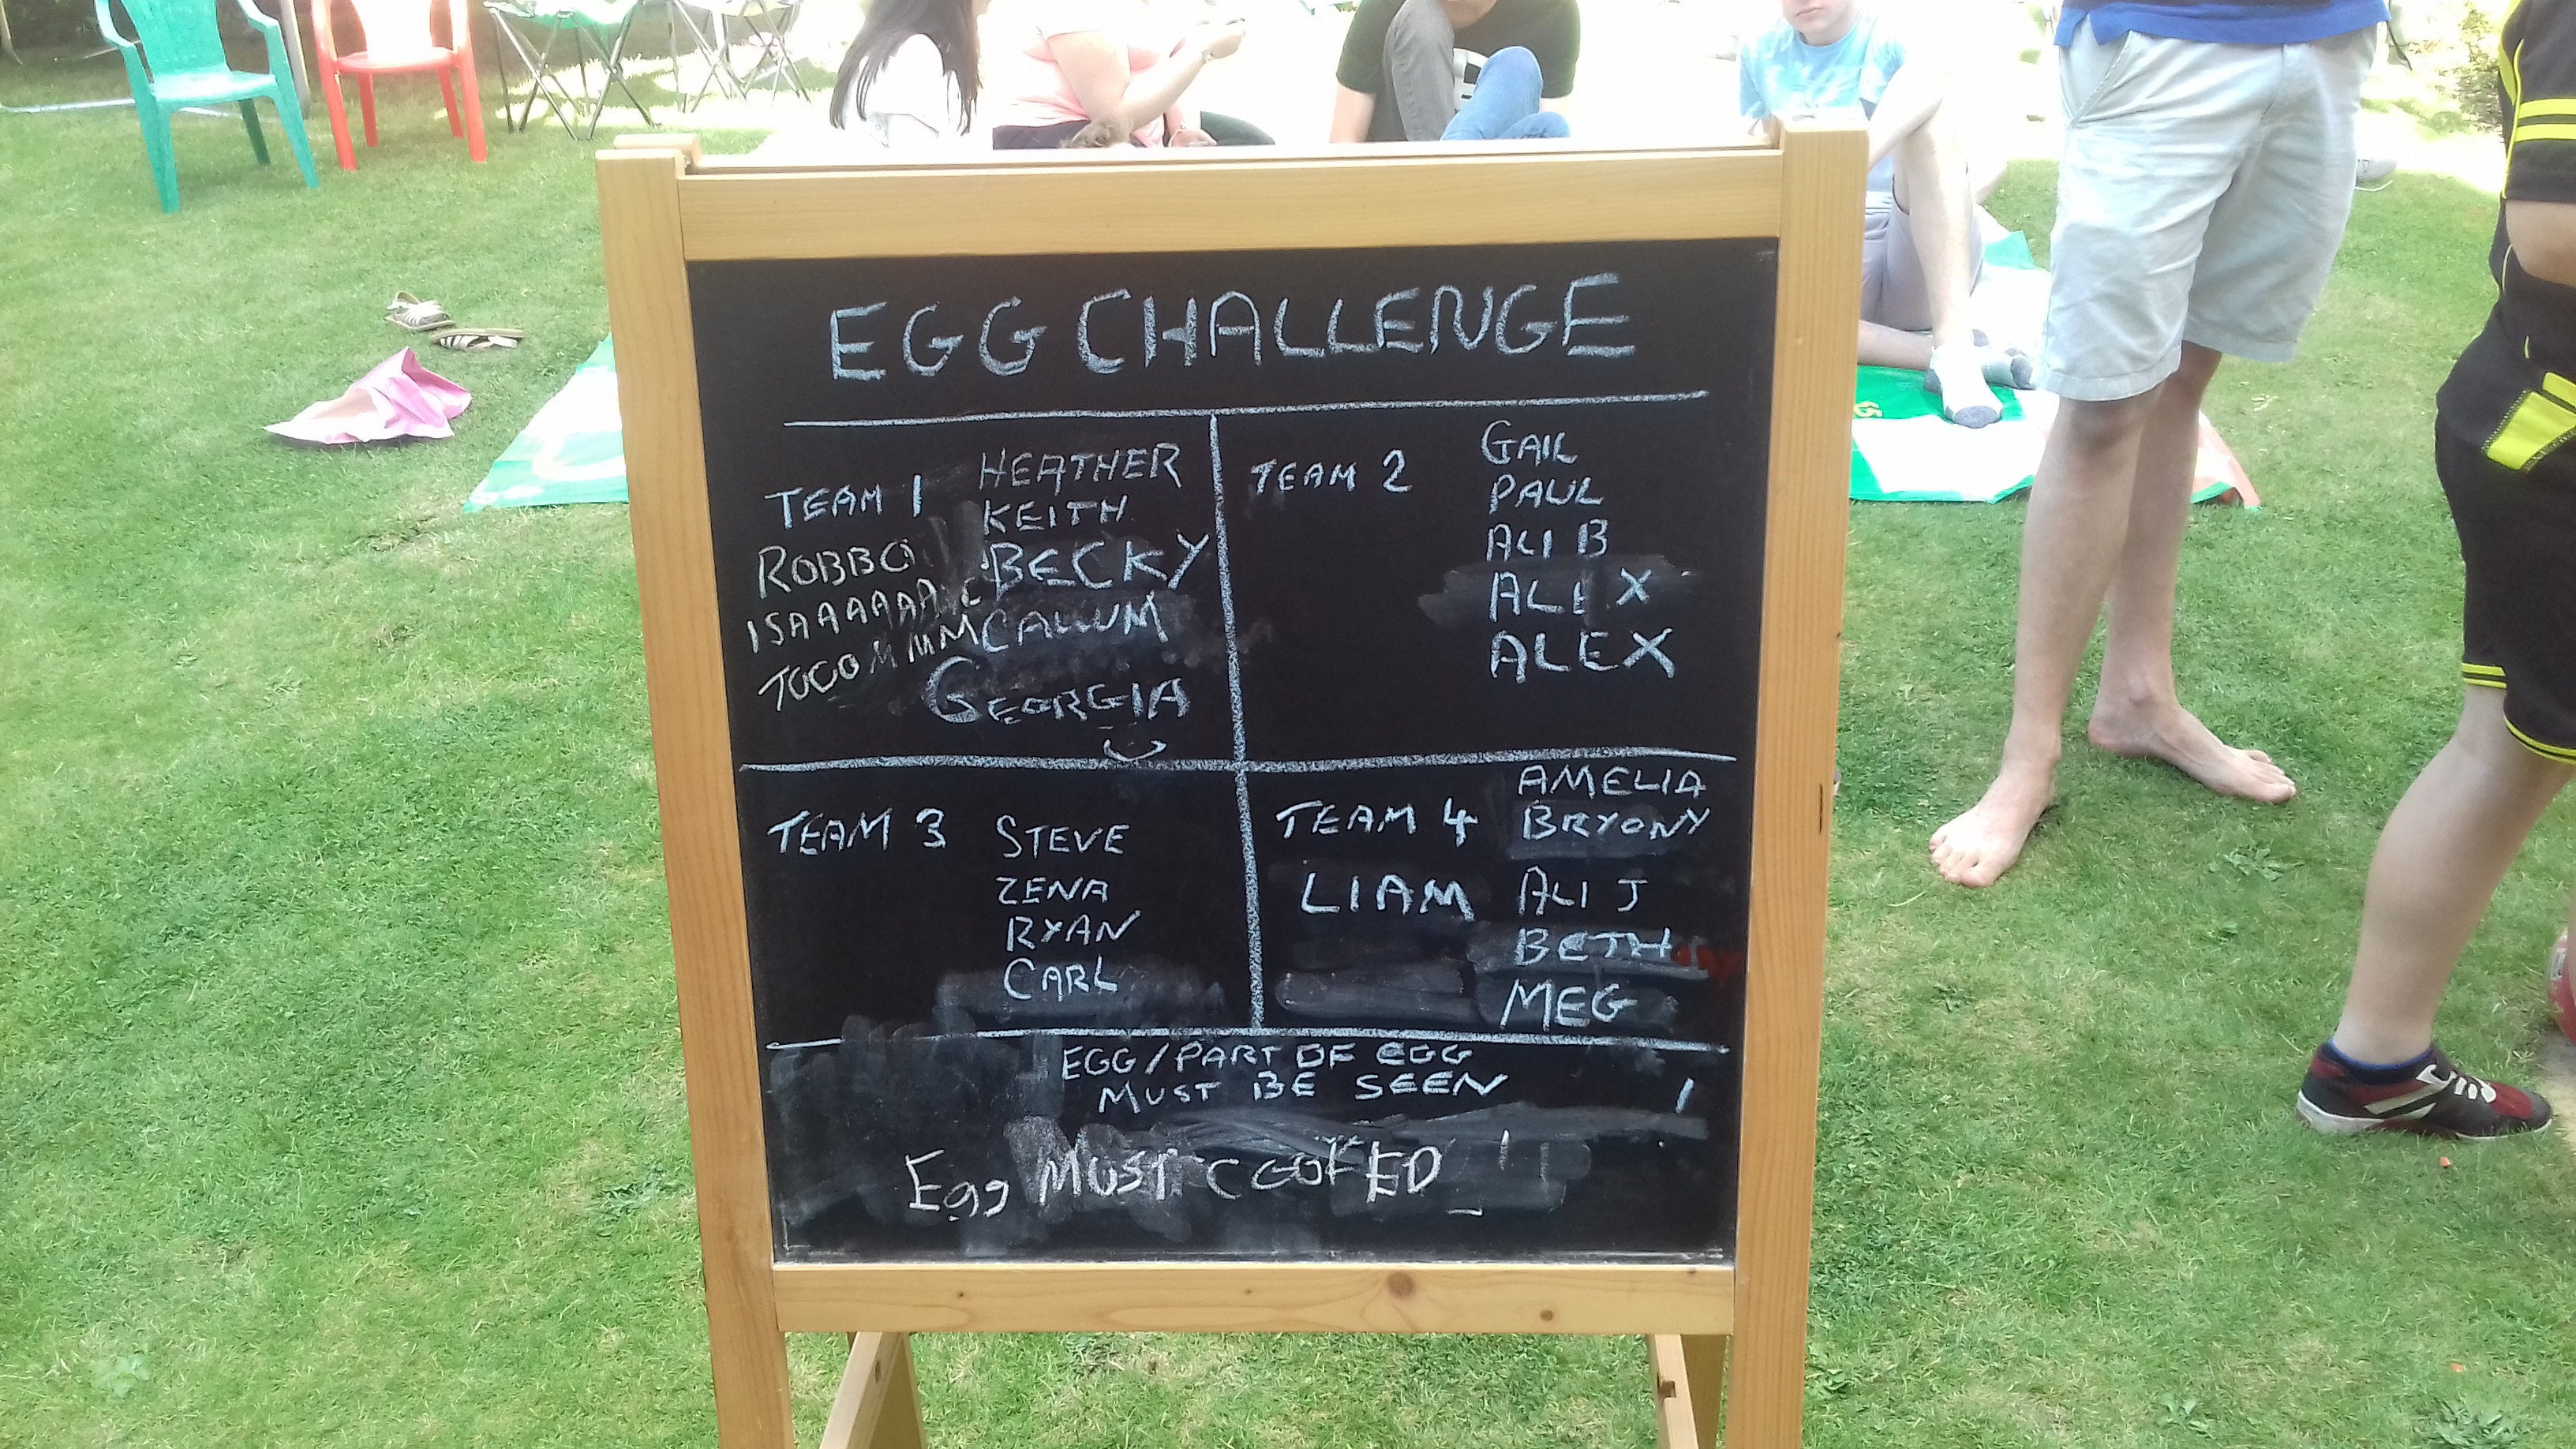 EGG CHALLENGE
TEAM 1
HEATHER
KEITH
BECKY
CALLUM
GEORGIA
ROBBO
ISAAAAAAC
TOOOMMMM
TEAM 2
GAIL
PAUL
ALI B
ALEX
ALEX
TEAM 3
STEVE
ZENA
RYAN
CARL
TEAM 4
AMELIA
BRYONY
LIAM
ALI J
BETH
MEG
EGG/PART OF EGG
MUST BE SEEN
Egg MUST COOKED